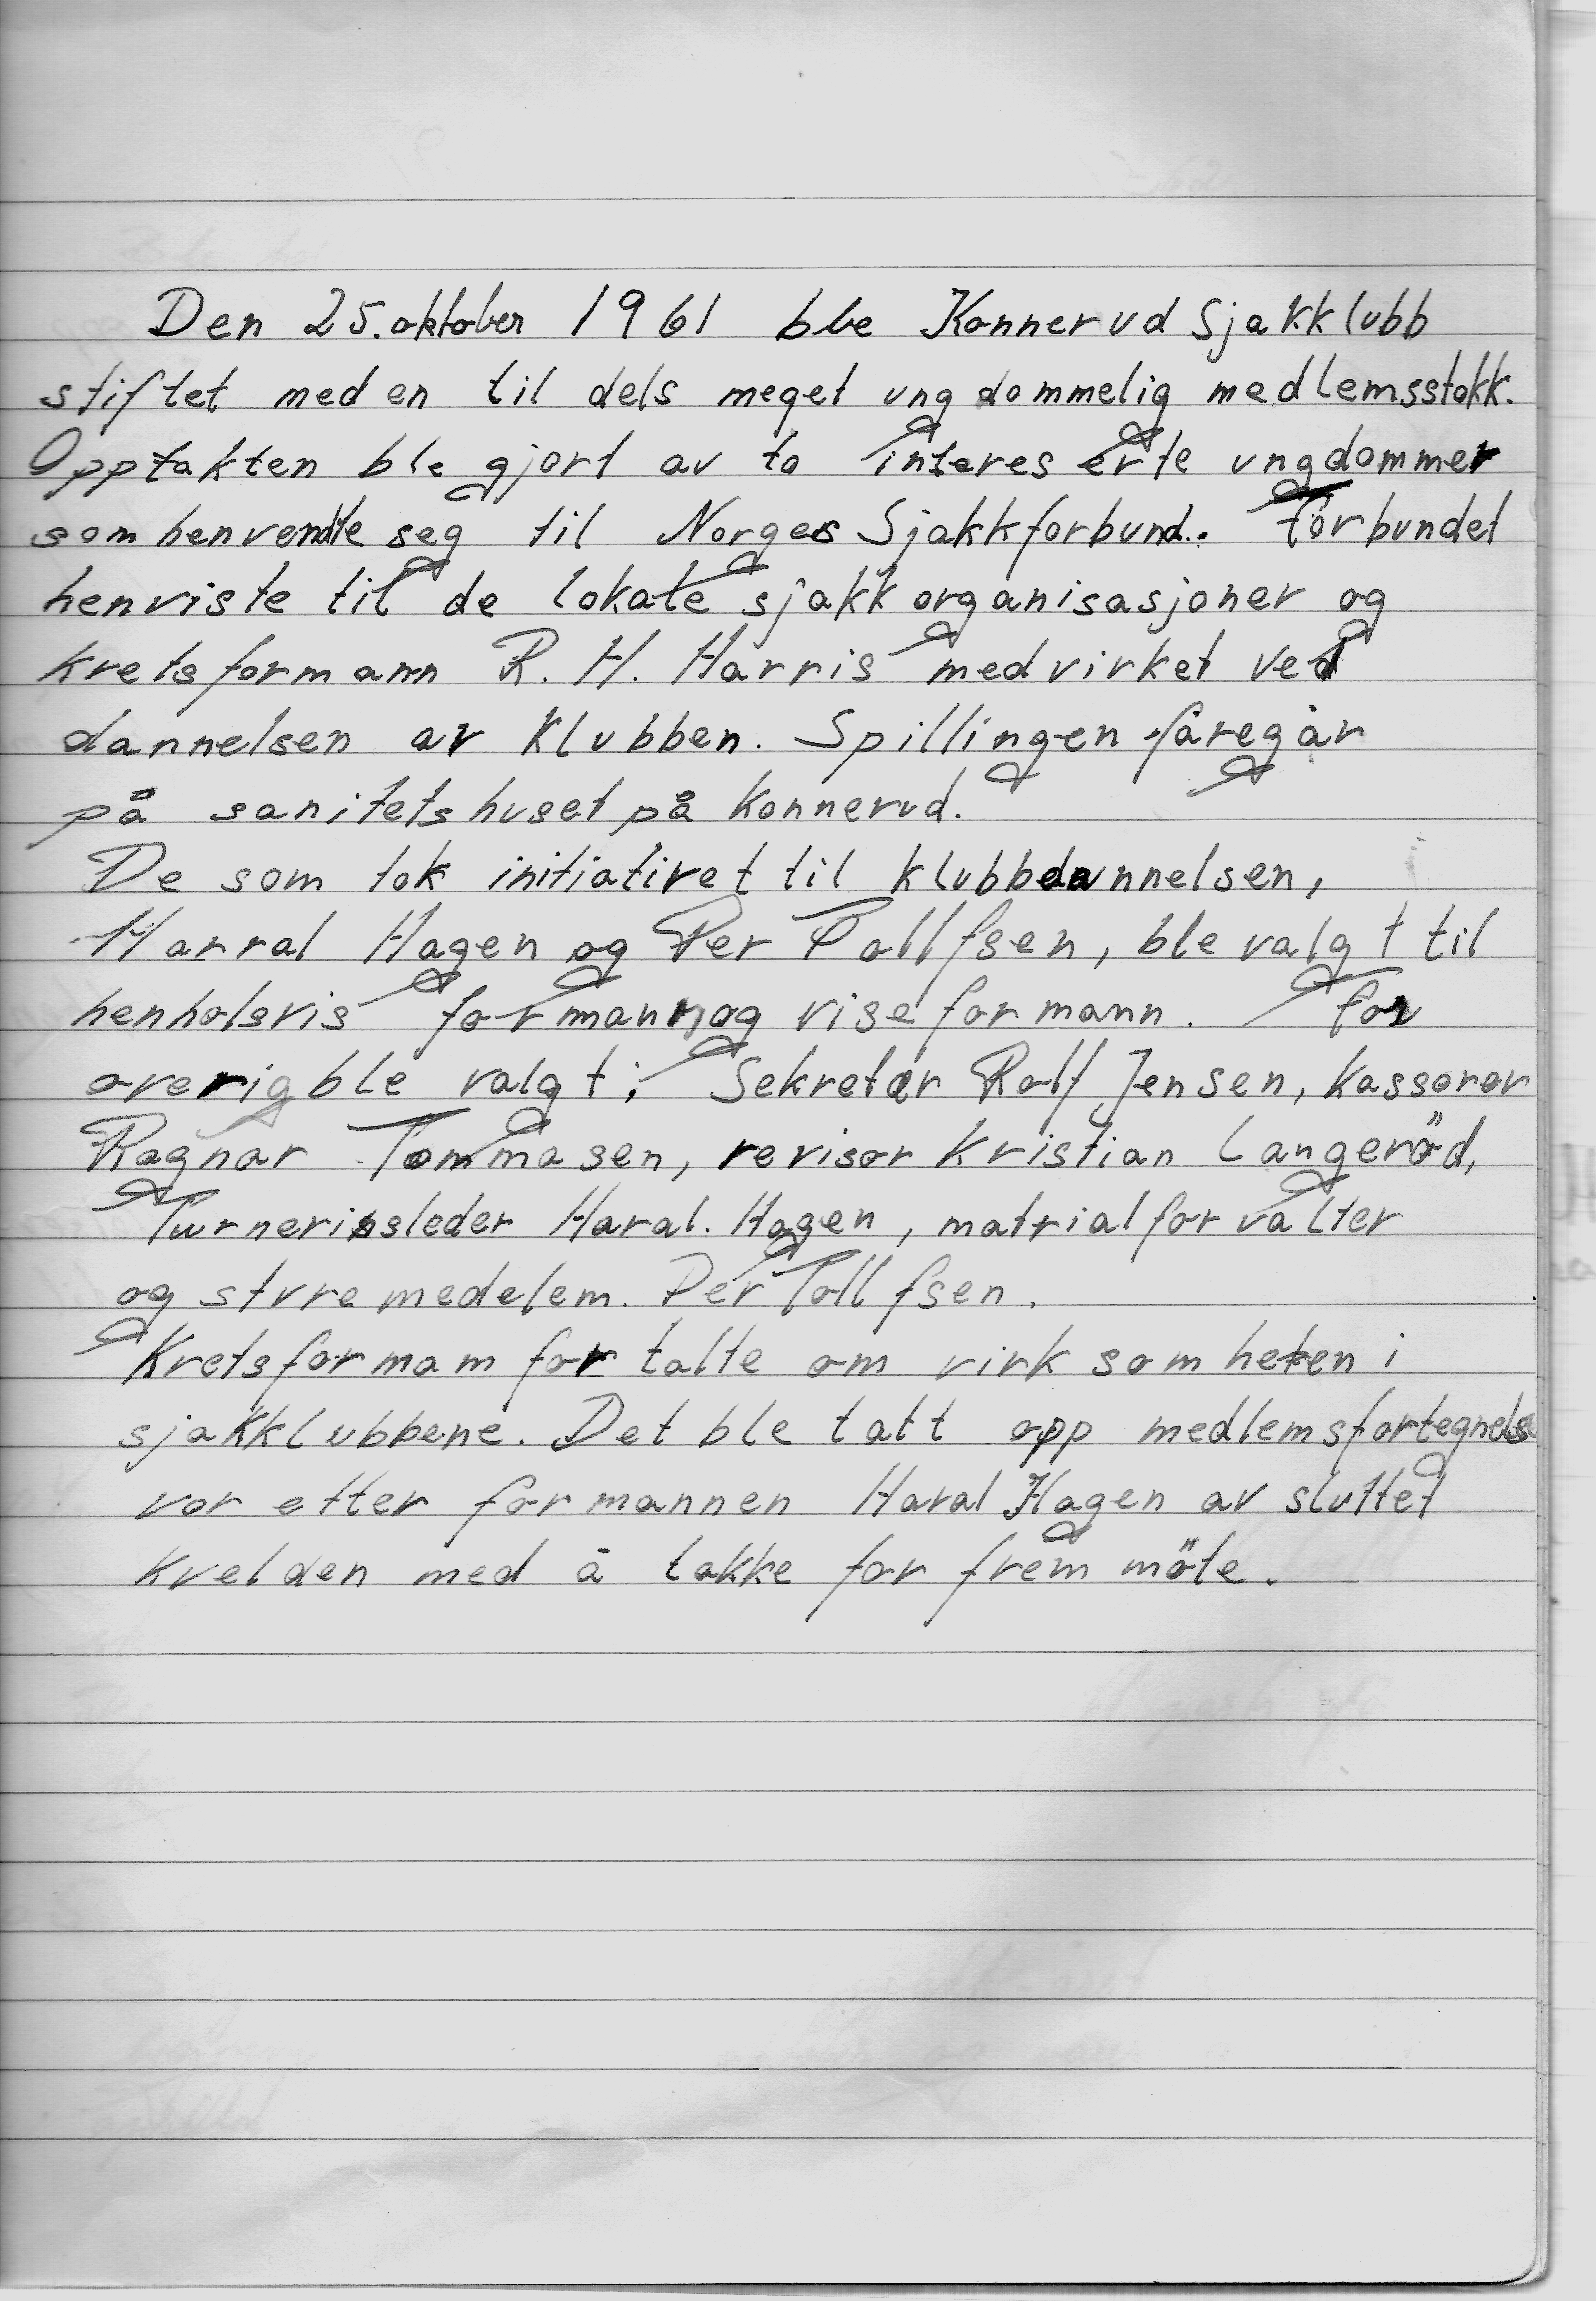 Den 25. oktober 1961 ble Konnerud Sjakklubb
stiftet med en til dels meget ungdommelig medlemsstokk.
Opptakten ble gjort av to intereserte ungdommer
som henvendte seg til Norges Sjakkforbund. Forbundet
henviste til de lokale sjakkorganisasjoner og
kretsformann R. H. Harris medvirket ved
dannelsen av klubben. Spillingen foregår
på sanitetshuset på Konnerud.
De som tok initiativet til klubbdannelsen,
Harral Hagen og Per Tollfsen, ble valgt til
henholsvis formann og viseformann. For
overig ble valgt: Sekretær Rolf Jensen, Kasserer
Ragnar Tommasen, revisor Kristian Langeröd,
Turnerinsleder Haral. Hagen, matrialforvalter
og styremedelem. Per Tollfsen.
Kretsformam fortalte om virksomheten i
sjakklubbene. Det ble tatt opp medlemsfortegnelse
vor etter formannen Haral Hagen av sluttet
kvelden med å takke for fremmöte.